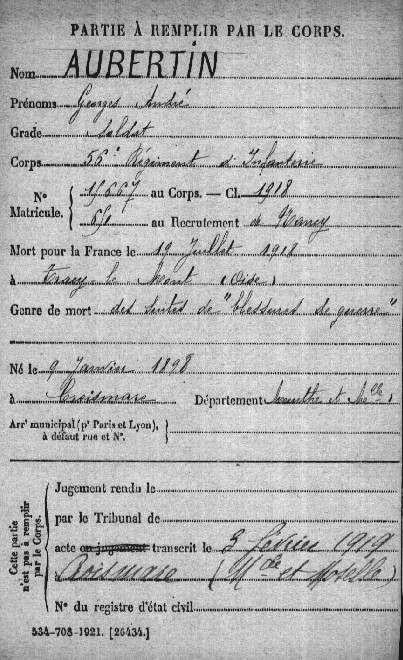 PARTIE À REMPLIR PAR LE CORPS.
Nom AUBERTIN
Prénoms Georges André
Grade Soldat
Corps 56e Régiment d'Infanterie
No Matricule. 19667 au Corps. — Cl. 1918
au Recrutement de Nancy
Mort pour la France le 19 Juillet 1918
à Tracy le Mont (Oise)
Genre de mort des suites de "blessures de guerre"
Né le 9 Janvier 1898
à Croismare Département Meurthe et Mlle
Arrt municipal (pr Paris et Lyon),
à défaut rue et No.
Cette partie
n'est pas à remplir
par le Corps.
Jugement rendu le
par le Tribunal de
acte ou jugement transcrit le 3 février 1919
Croismare (Mthe et Moselle)
No du registre d'état civil
534-708-1921. [26434.]